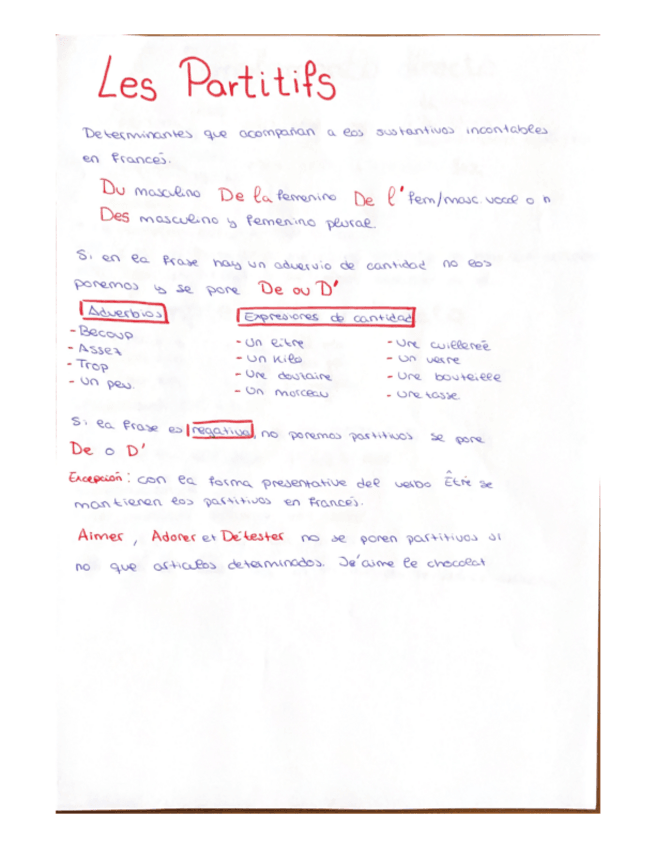 Les Partitifs
Determinantes que acompañan a los sustantivos incontables
en francés.
Du masculino De la femenino De l' fem/masc. vocal o h
Des masculino y femenino plural.
Si en la frase hay un advervio de cantidad no los
ponemos y se pone De ou D'
Adverbios
- Becoup
- Assez
- Trop
- un peu.
Expresiones de cantidad
- Un litre
- Un kilo
- Une doutaine
- Un morceau
- Une cuillereé
- Un verre
- Une bouteille
- Une tasse
Si la frase es negativa, no ponemos partitivos se pone
De o D'
Excepción: con la forma presentative del verbo Être se
mantienen los partitivos en francés.
Aimer, Adorer et Détester no se ponen partitivos si
no que articulos determinados. Je'aime le chocolat